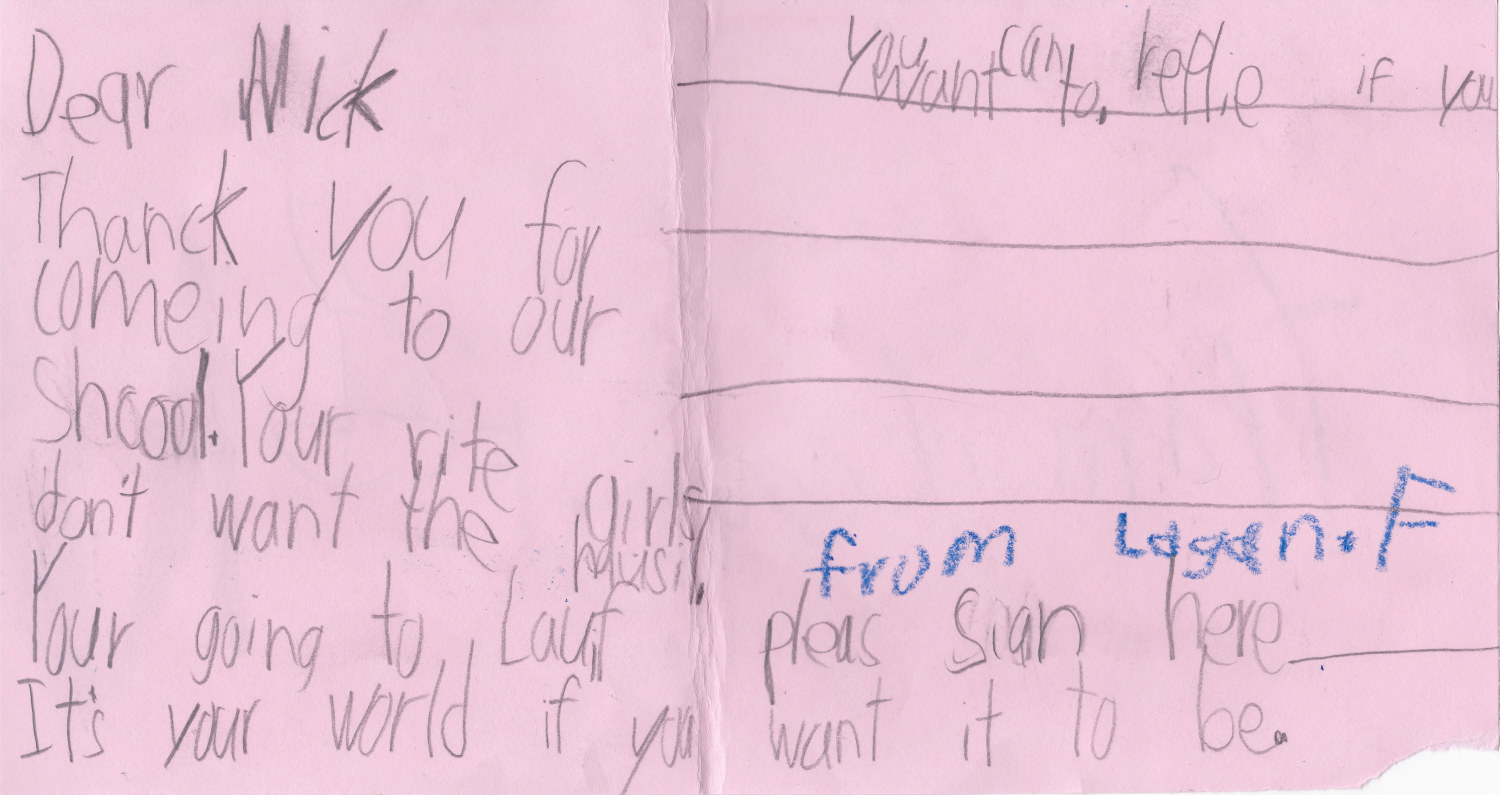 Dear Nick
Thanck you for
comeing to our
Shcool. Your rite
don't want the girls
music,
Your going to Lauf,
It's your world if you want it to be.
You can replie if you
want to.
from Logan. F
pleas sign here